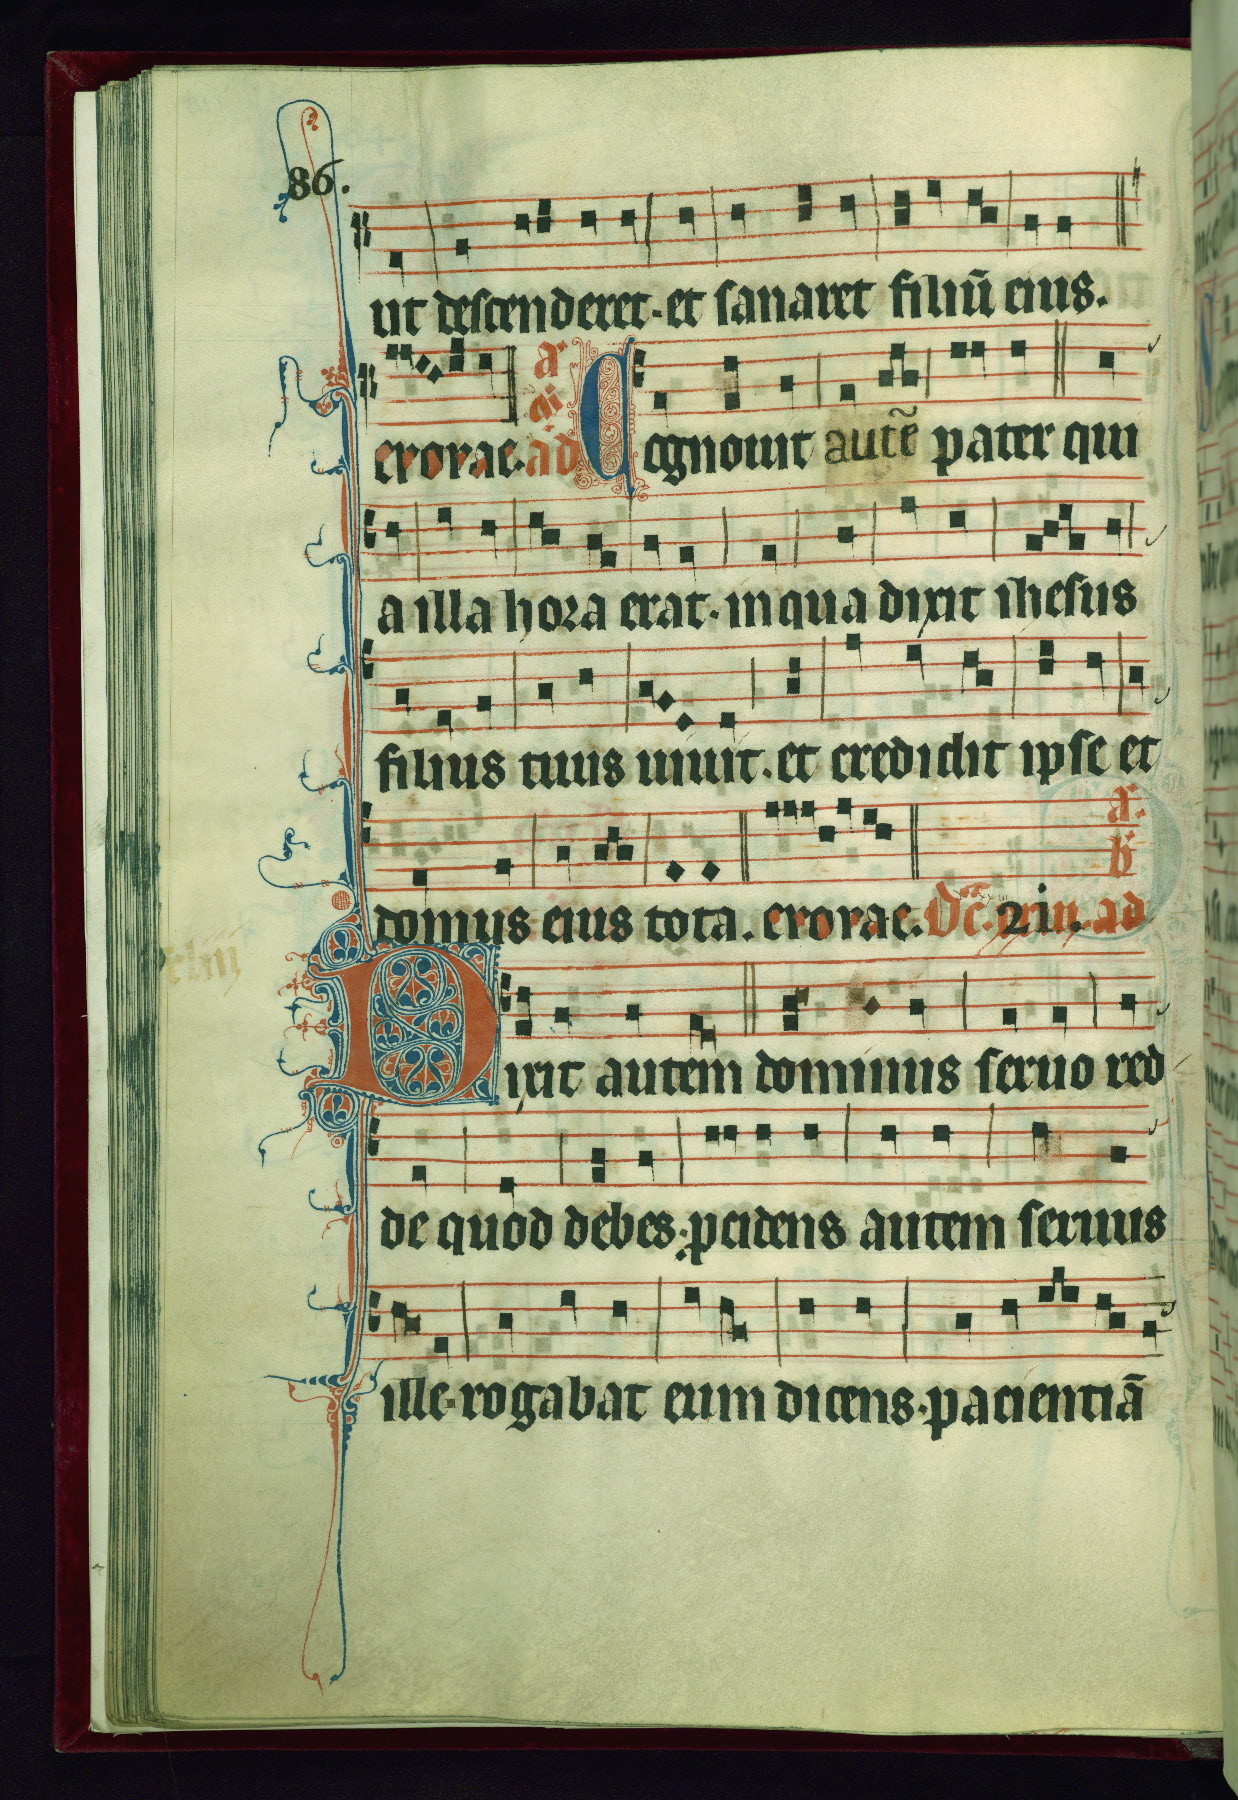 86.
ut descenderet. et sanaret filiū eius.
erorae. ad Cognouit autē pater qui
a illa hora erat. in qua dixit ihesus
filius tuus uiuit. et credidit ipse et
domus eius tota. erorae. Dc̄. 21. ad
Dixit autem dominus seruo red
de quod debes. pcidens autem seruus
ille. rogabat eum dicens. pacientiā